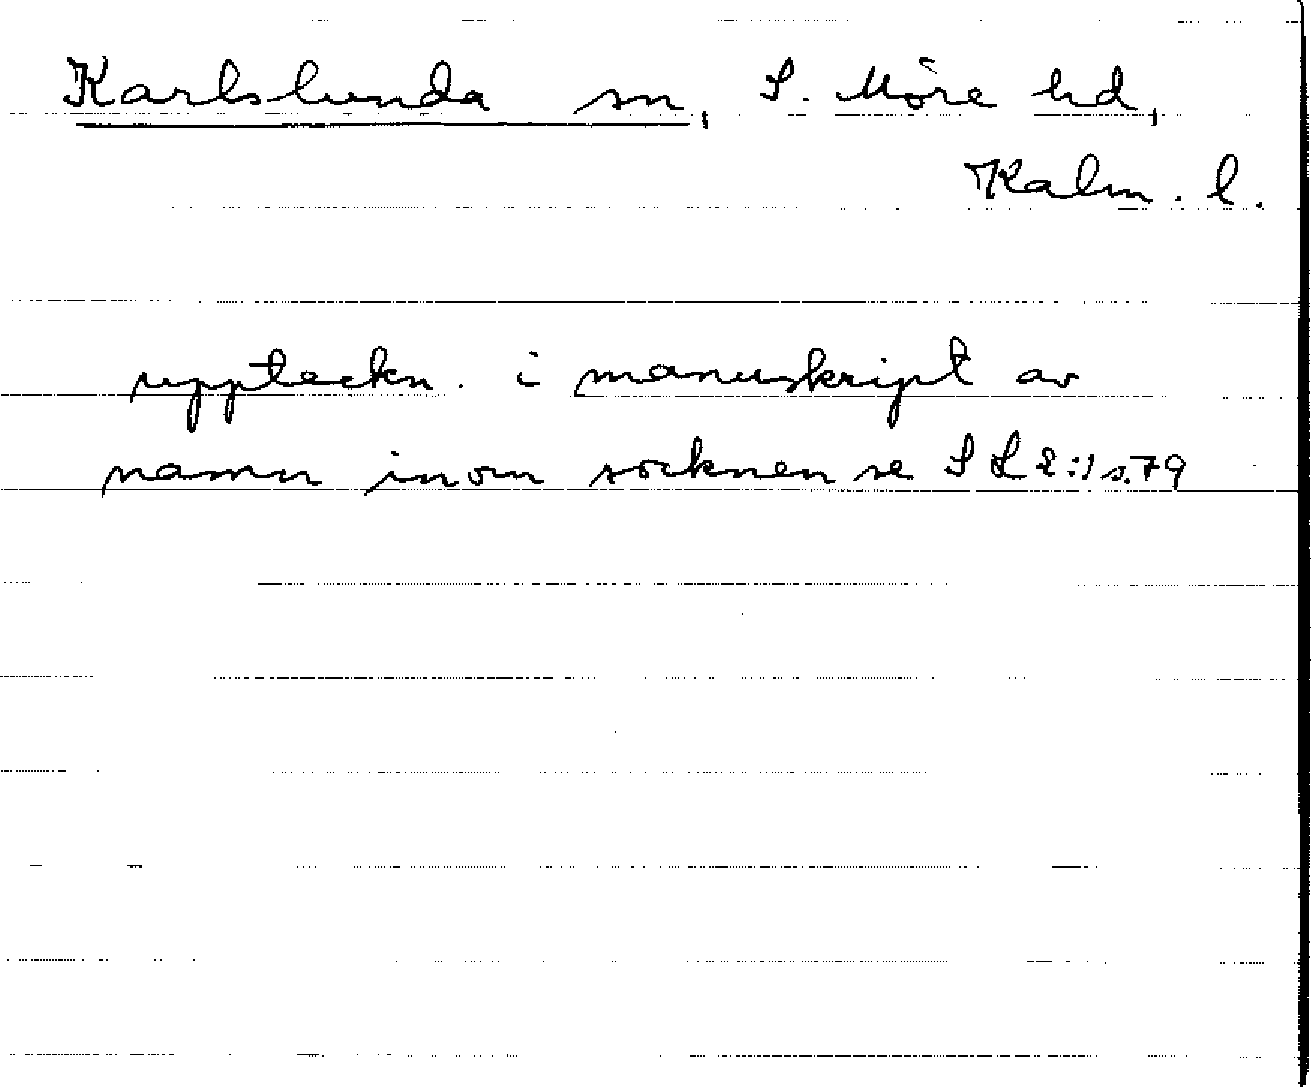 Karlslunda sn, S. Möre hd,
Kalm. l.
uppteckn. i manuskript av
namn inom socknen se SL 2:1 s.79